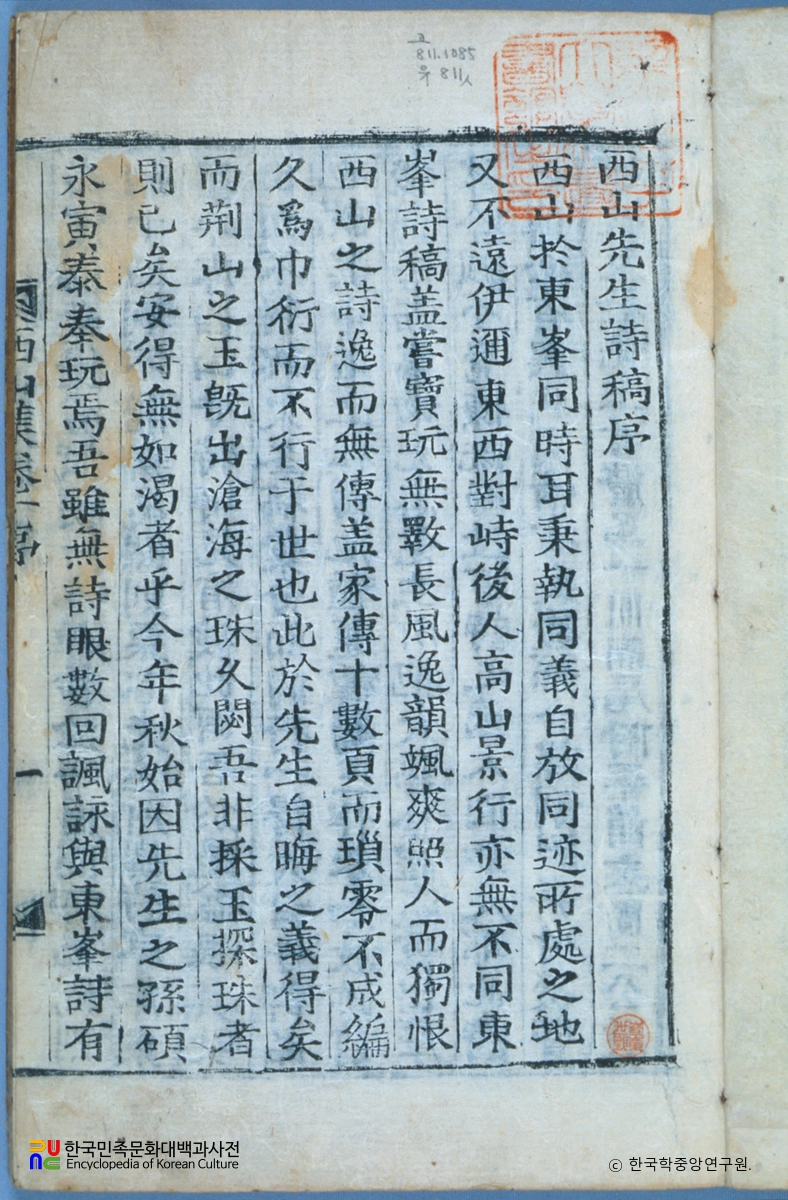 고
811.1085
유 811ㅅ
西山先生詩稿序
西山於東峯同時耳秉執同義自放同迹所處之地
又不遠伊邇東西對峙後人高山景行亦無不同東
峯詩稿盖嘗寶玩無斁長風逸韻颯爽照人而獨恨
西山之詩逸而無傳盖家傳十數頁而瑣零不成編
久爲巾衍而不行于世也此於先生自晦之義得矣
而荆山之玉旣出滄海之珠久閟吾非採玉探珠者
則已矣安得無如渴者乎今年秋始因先生之孫碩
永寅泰奉玩焉吾雖無詩眼數回諷詠與東峯詩有
西山集卷一序
一
한국민족문화대백과사전
Encyclopedia of Korean Culture
ⓒ 한국학중앙연구원.